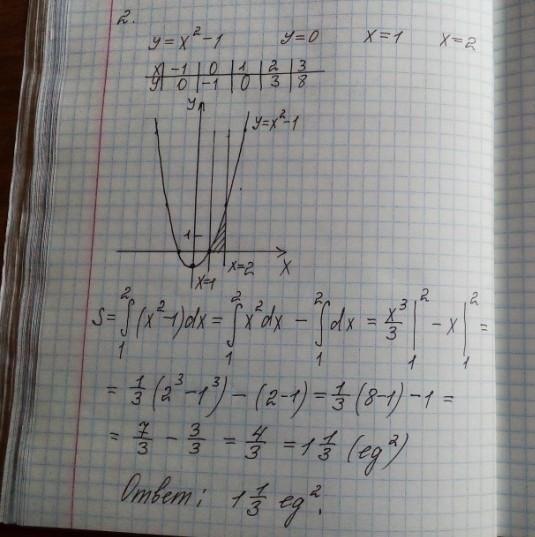 2.
y=x²-1 y=0 x=1 x=2
x -1 0 1 2 3
y 0 -1 0 3 8
y
y=x²-1
1
x=2 x
x=1
S=∫₁²(x²-1)dx=∫₁²x²dx - ∫₁²dx = x³/3|₁² - x|₁² =
= 1/3(2³-1³)-(2-1)=1/3(8-1)-1=
= 7/3 - 3/3 = 4/3 = 1 1/3 (eg²)
Ответ: 1 1/3 eg².